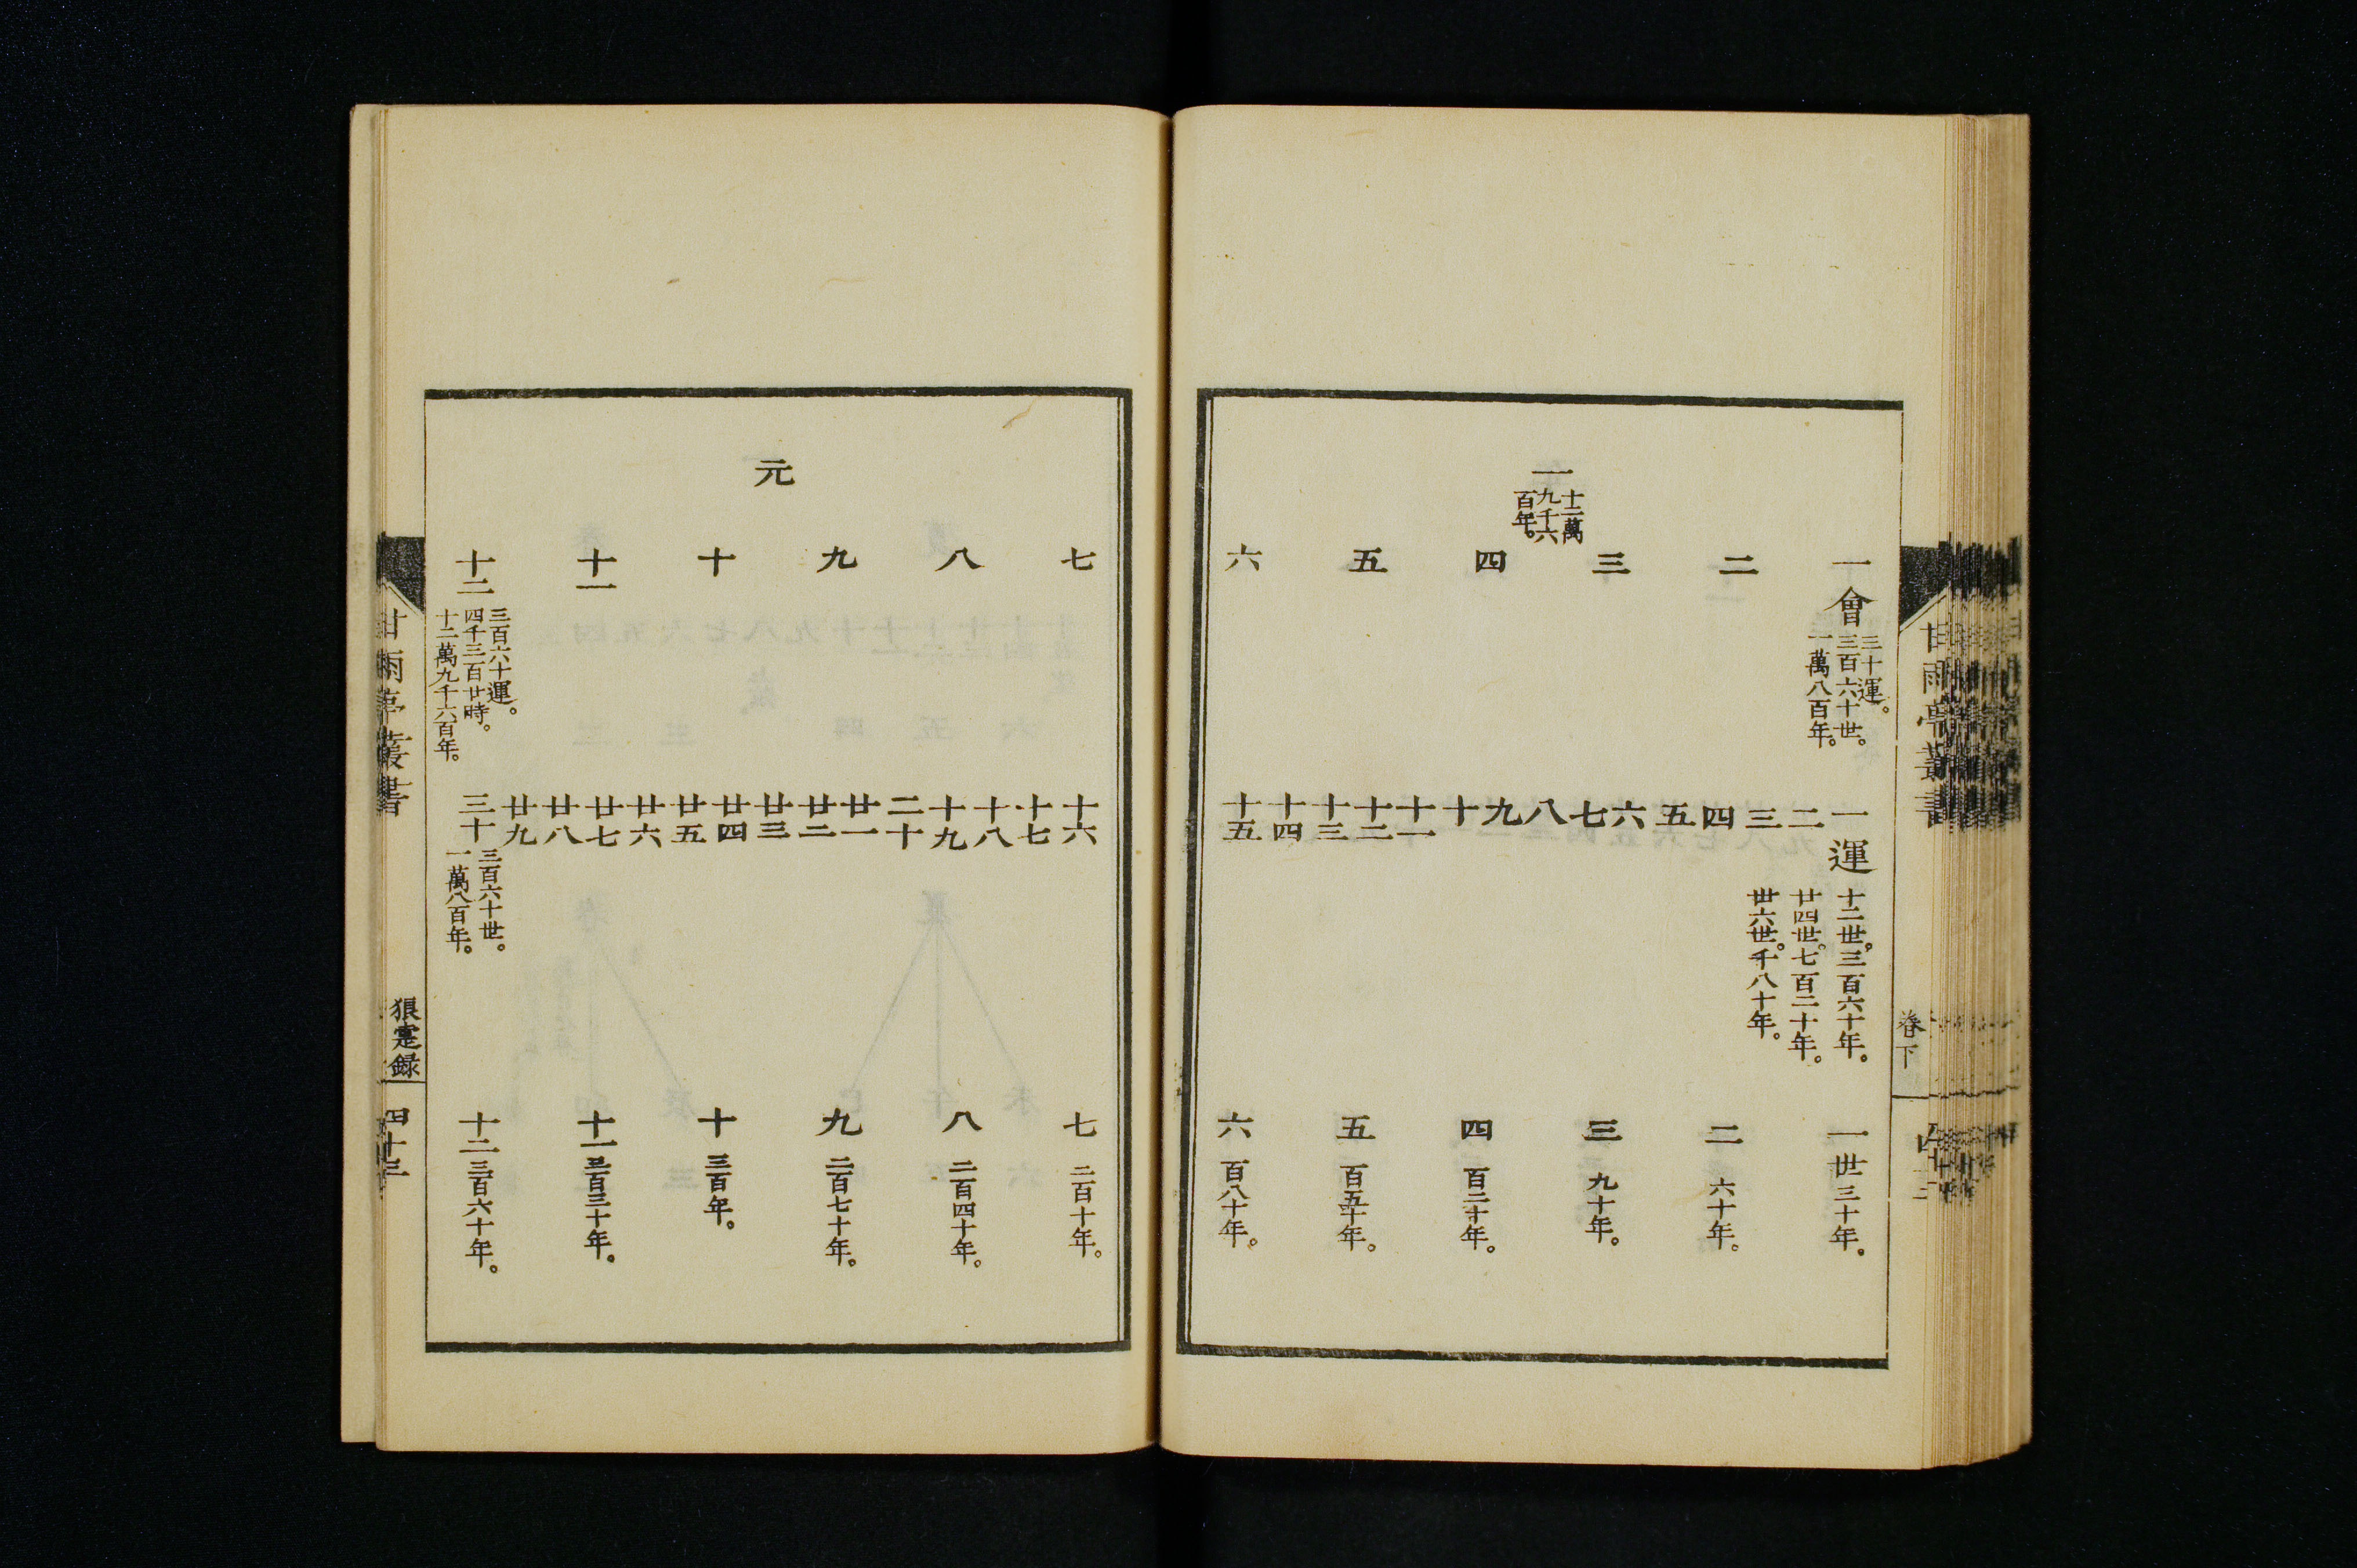 一
十二萬
九千六
百年。
一會
三十運。
三百六十世。
一萬八百年。
二
三
四
五
六
一運
十二世。三百六十年。
廿四世。七百二十年。
丗六世。千八十年。
二
三
四
五
六
七
八
九
十
十一
十二
十三
十四
十五
一世 三十年。
二 六十年。
三 九十年。
四 百二十年。
五 百五十年。
六 百八十年。
卷下
甘雨亭叢書
元
七
八
九
十
十一
十二
三百六十運。
四千三百廿時。
十二萬九千六百年。
十六
十七
十八
十九
二十
廿一
廿二
廿三
廿四
廿五
廿六
廿七
廿八
廿九
三十
三百六十世。
一萬八百年。
七 二百十年。
八 二百四十年。
九 二百七十年。
十 三百年。
十一 三百三十年。
十二 三百六十年。
甘雨亭叢書
狼疐録
四十三